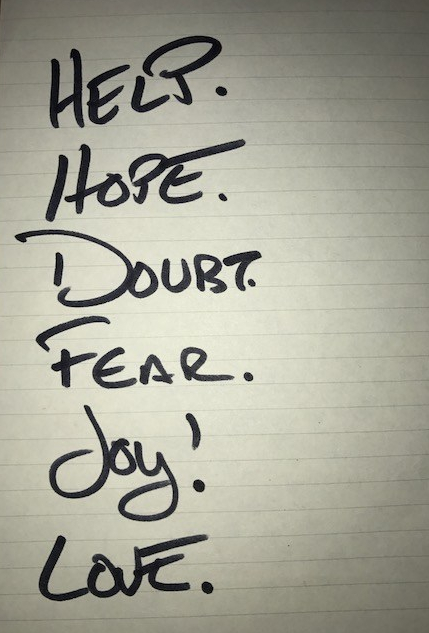 HELP.
HOPE.
DOUBT.
FEAR.
Joy!
LOVE.